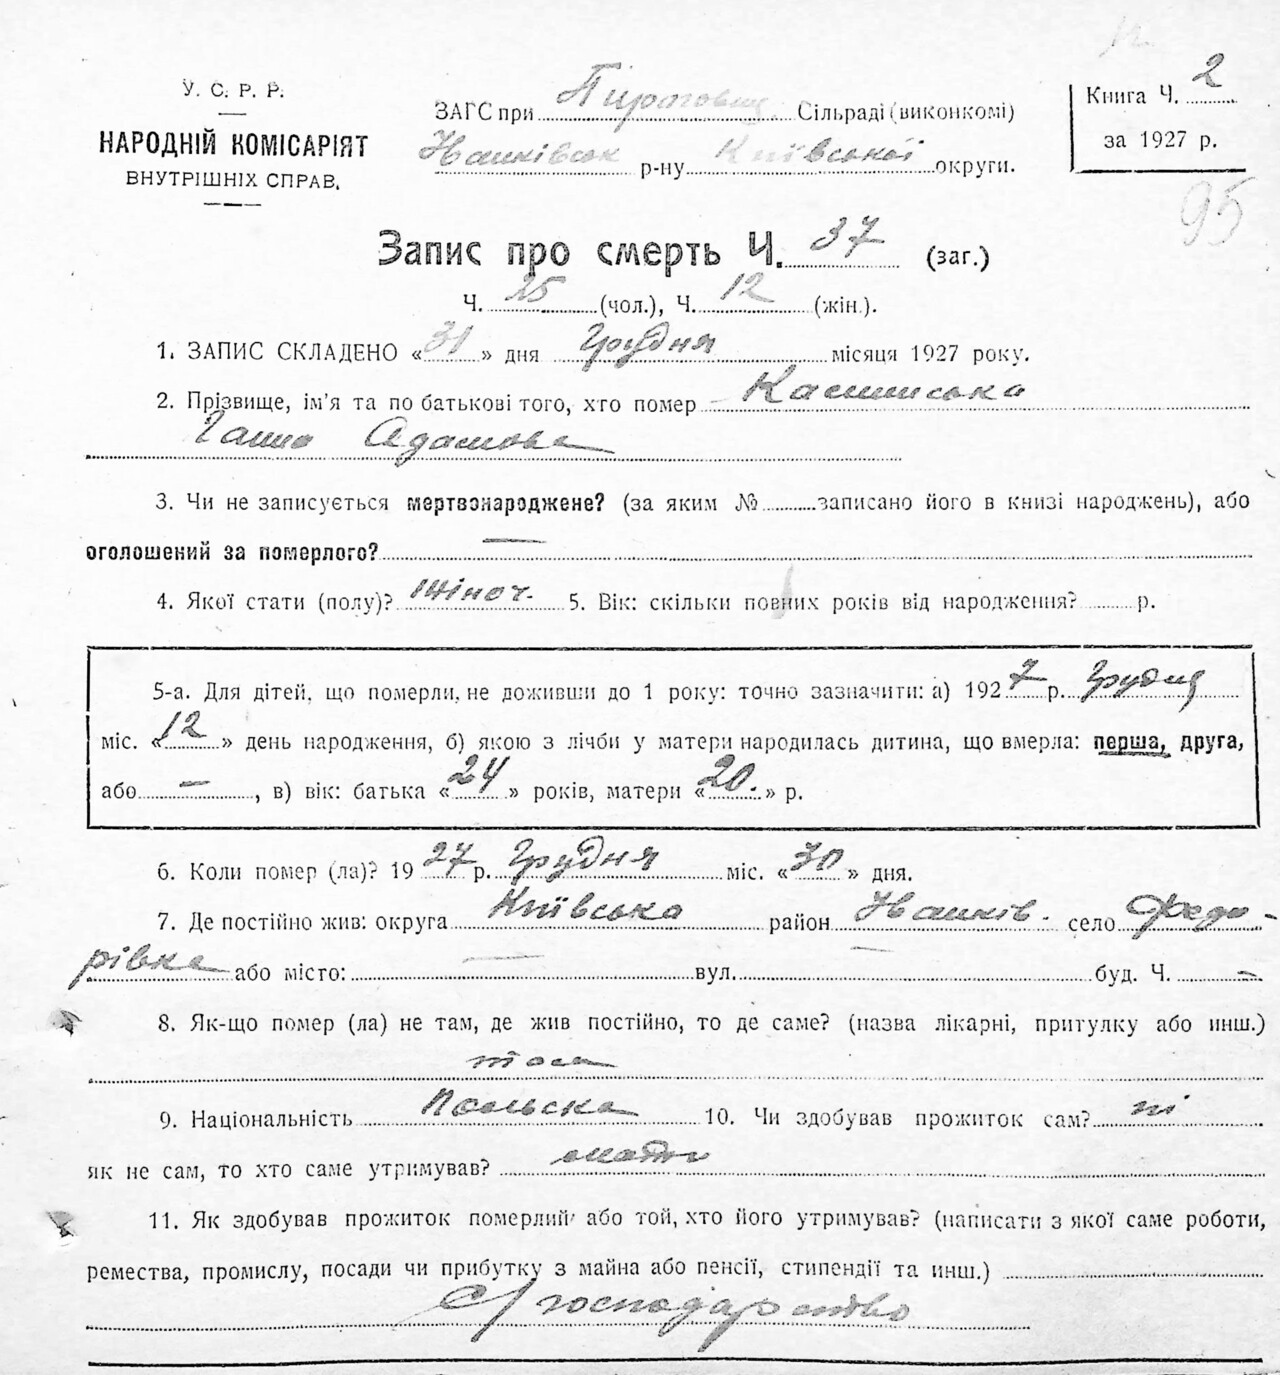 У. С. Р. Р.
НАРОДНІЙ КОМІСАРІЯТ
ВНУТРІШНІХ СПРАВ.
ЗАГС при Пирогович. Сільраді (виконкомі)
Іванківськ р-ну Київської округи.
Книга Ч. 2
за 1927 р.
95
Запис про смерть Ч. 37 (заг.)
Ч. 25 (чол.), Ч. 12 (жін.).
1. ЗАПИС СКЛАДЕНО «31» дня Грудня місяця 1927 року.
2. Прізвище, ім'я та по батькові того, хто помер
Ганна Адамова
3. Чи не записується мертвонароджене? (за яким № записано його в книзі народжень), або
оголошений за померлого? —
4. Якої стати (полу)? жіноч. 5. Вік: скільки повних років від народження? р.
5-а. Для дітей, що померли, не доживши до 1 року: точно зазначити: а) 1927 р. Грудня
міс. «12» день народження, б) якою з лічби у матери народилась дитина, що вмерла: перша, друга,
або —, в) вік: батька «24» років, матери «20.» р.
6. Коли помер (ла)? 1927 р. Грудня міс. «30» дня.
7. Де постійно жив: округа Київська район Іванків. село Федо-
рівка або місто: — вул. — буд. Ч. —
8. Як-що помер (ла) не там, де жив постійно, то де саме? (назва лікарні, притулку або инш.)
9. Національність Польска 10. Чи здобував прожиток сам? ні
як не сам, то хто саме утримував? мати
11. Як здобував прожиток померлий або той, хто його утримував? (написати з якої саме роботи,
ремества, промислу, посади чи прибутку з майна або пенсії, стипендії та инш.)
С/господарство